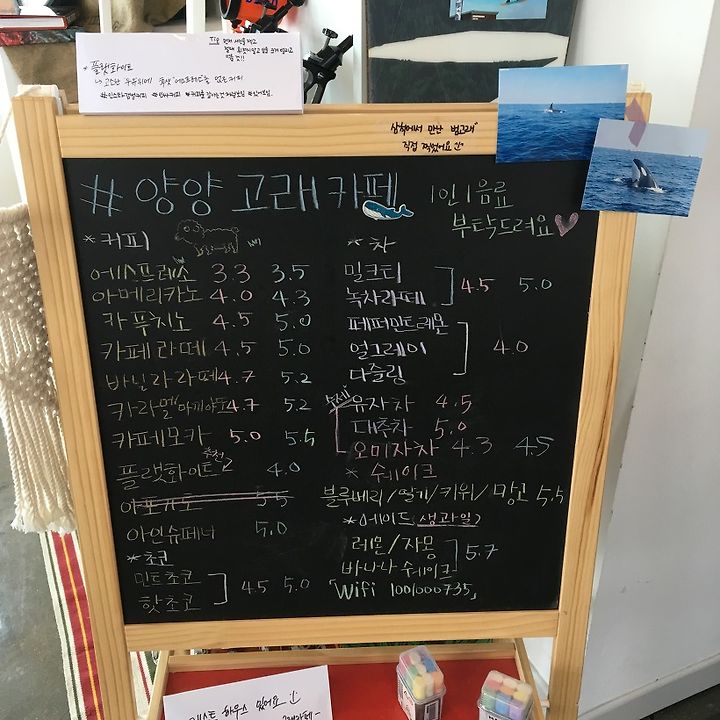 Tip 먼저 시럽을 넣고
* 플랫화이트
삼척에서 만난 범고래"
직접 찍었어요
# 양양 고래카페
1인 1음료
부탁드려요
* 커피
에스프레소 3.3 3.5
아메리카노 4.0 4.3
카푸치노 4.5 5.0
카페라떼 4.5 5.0
바닐라라떼 4.7 5.2
카라멜마끼아또 4.7 5.2
카페모카 5.0 5.5
추천
플랫화이트 4.0
아포가토 5.5
아인슈페너 5.0
* 초코
민트초코
핫초코
4.5 5.0
* 차
밀크티
녹차라떼
4.5 5.0
페퍼민트레몬
얼그레이
다즐링
4.0
수제
유자차 4.5
대추차 5.0
오미자차 4.3 4.5
* 쉐이크
블루베리/딸기/키위/망고 5.5
* 에이드 (생과일)
레몬/자몽
바나나 쉐이크
5.7
「Wifi 1001000735」
게스트 하우스 있어요